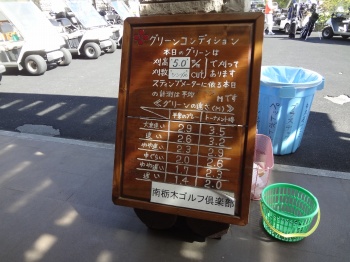 グリーンコンディション
本日のグリーンは
刈高 5.0 m/m で刈って
刈数 cut あります
スティンプメーターに依る本日
の計測は平均 Mです
≪グリーンの速さ(M)≫
平常のプレー トーナメント時
大変速い 2.9 3.5
速い 2.6 3.2
やや速い 2.3 2.9
中ぐらい 2.0 2.6
やや遅い 1.7 2.3
遅い 1.4 2.0
南栃木ゴルフ倶楽部